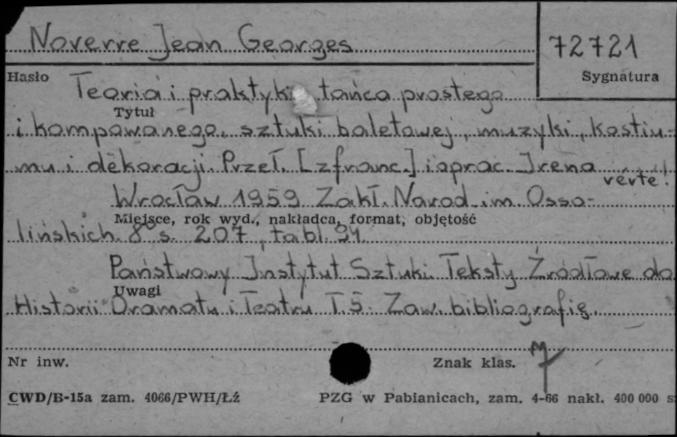 Noverre Jean Georges
72721
Hasło
Sygnatura
Teoria i praktyka tańca prostego
Tytuł
i komponowanego, sztuki baletowej, muzyki, kostiu-
mu i dekoracji. Przeł. [z franc.] i oprac. Irena
verte!
Wrocław 1959 Zakł. Narod. im. Osso-
Miejsce, rok wyd., nakładca, format, objętość
lińskich 8° s. 207, tabl. 34
Państwowy Instytut Sztuki. Teksty Źródłowe do
Uwagi
Historii Dramatu i Teatru T. 5. Zaw. bibliografię.
Nr inw.
Znak klas.
CWD/B-15a zam. 4066/PWH/Łź
PZG w Pabianicach, zam. 4-66 nakł. 400 000 s